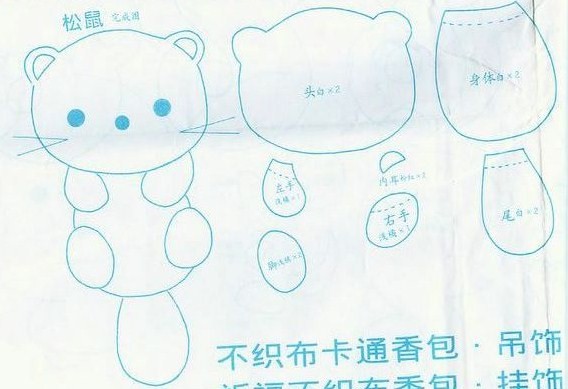 松鼠 完成图
头白×2
身体白×2
左手
浅橘×1
内耳粉红×2
右手
浅橘×1
尾白×2
脚浅橘×2
不织布卡通香包·吊饰
祈福不织布香包·挂饰